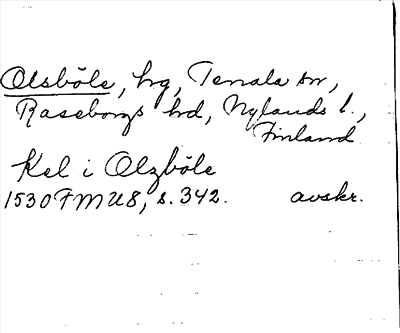 Olsböle, hg, Tenala sn,
Raseborgs hd, Nylands l.,
Finland
Kel i Olzböle
1530 FMU8, s. 342. avskr.